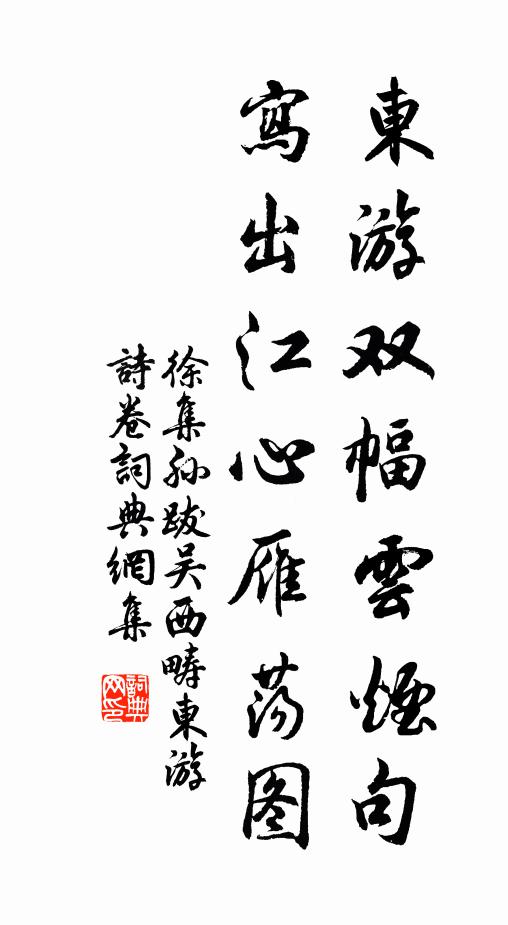 東游双幅雲煙句
寫出江心雁荡图
徐集孙跋吴西疇東游
詩卷詞典網集
詞典
网印